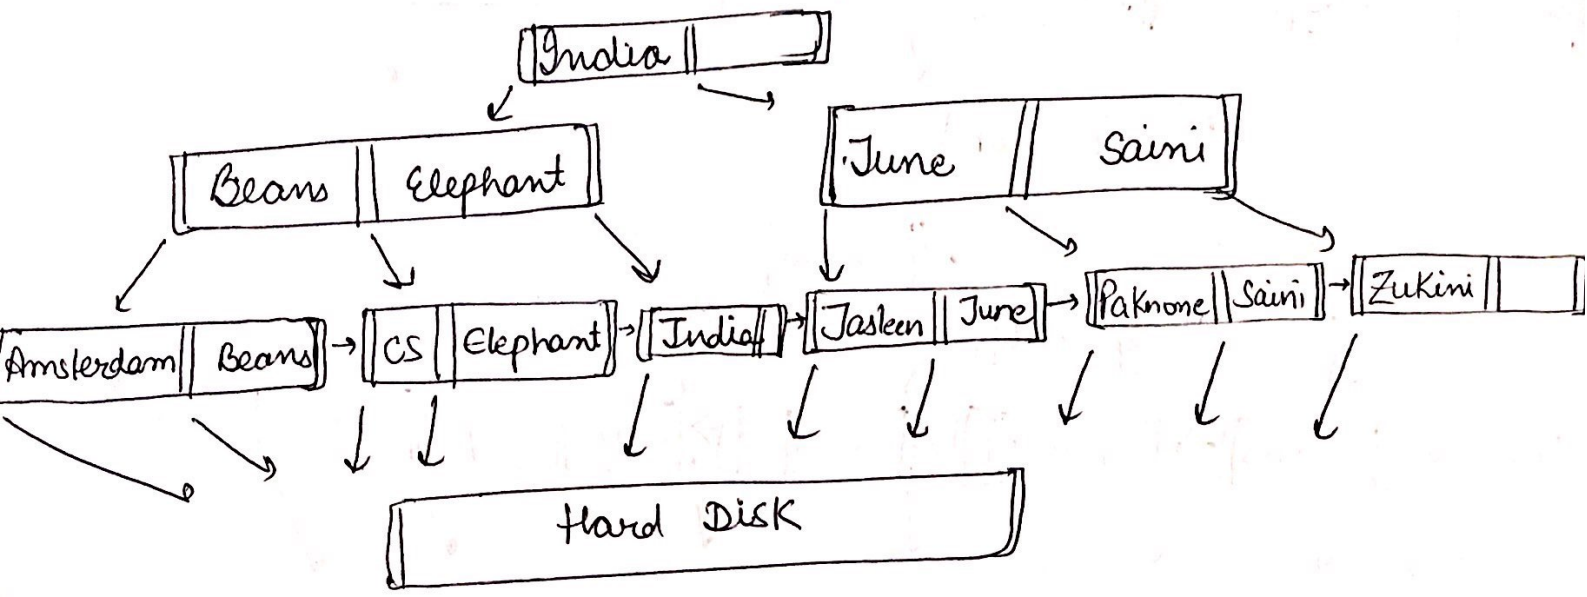 India
Beans Elephant
June Saini
Amsterdam Beans
CS Elephant
India
Jasleen June
Paknone Saini
Zukini
Hard Disk